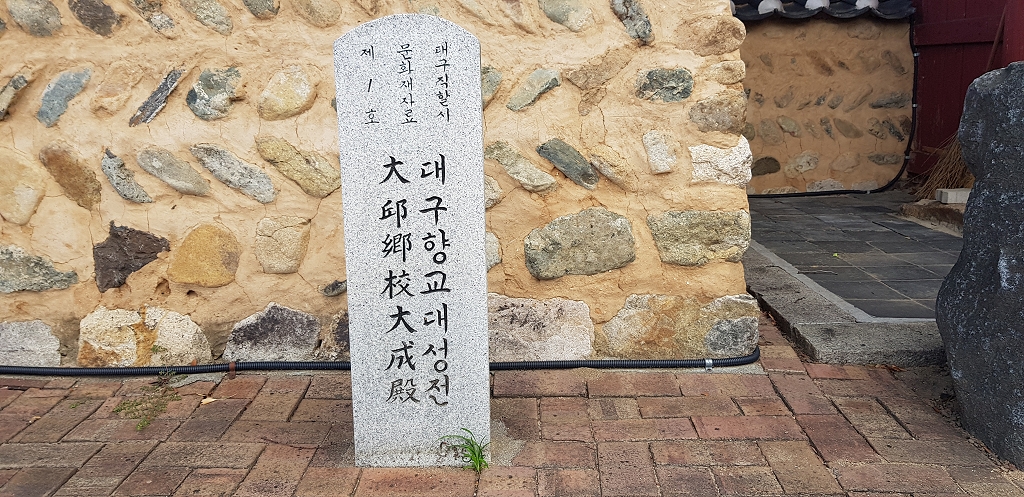 대구직할시
문화재자료
제1호
대구향교대성전
大邱鄕校大成殿